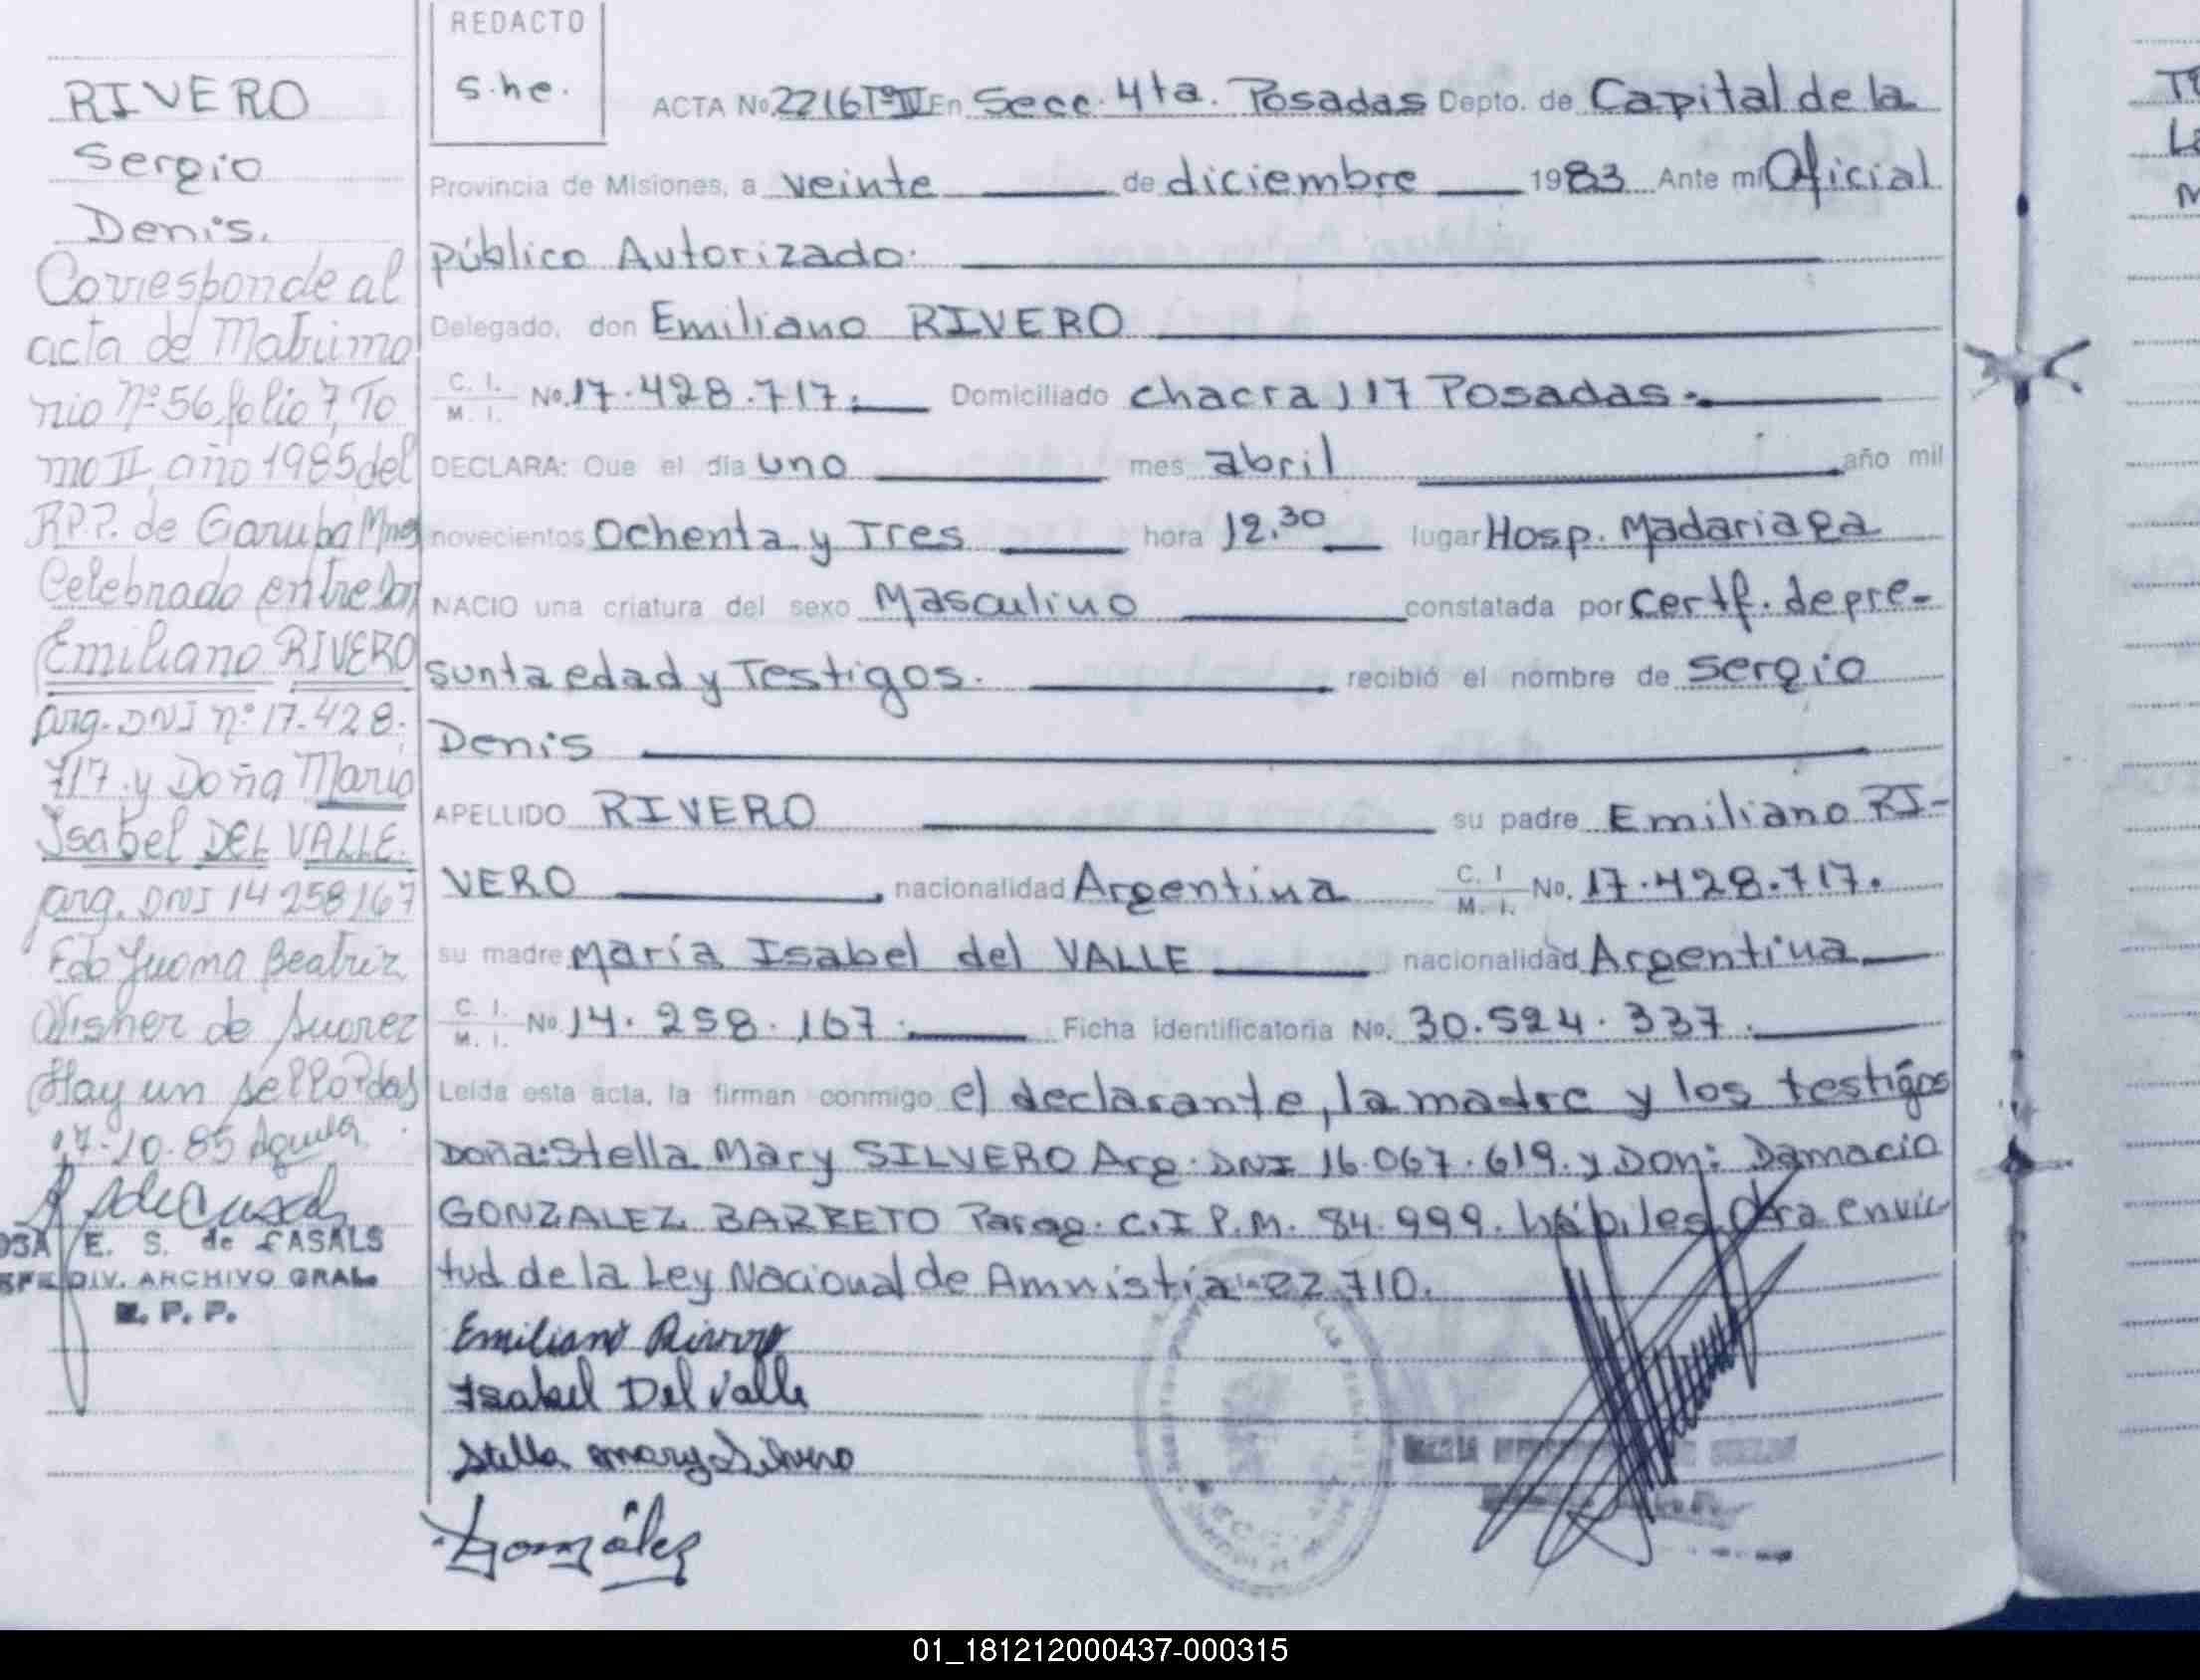 RIVERO
Sergio
Denis.
Corresponde al
acta de Matrimo
nio Nº 56, folio 7, To
mo II, año 1985 del
R.P.P. de Garupa Mnes
Celebrado entre Don
Emiliano RIVERO
arg. DNI nº 17.428.
717. y Doña Maria
Isabel DEL VALLE.
arg. DNI 14 258 167
Fdo Juana Beatriz
de Suarez
Hay un sello Pdas
17-10-85
E. S. de CASALS
DIV. ARCHIVO GRAL.
R. P. P.
REDACTO
S.he.
ACTA No. 2216 Tº IV En Secc. 4ta. Posadas Depto. de Capital de la
Provincia de Misiones, a veinte de diciembre 1983 Ante mi Oficial
público Autorizado.
Delegado, don Emiliano RIVERO
C. I. M. I. No. 17.428.717. Domiciliado chacra 117 Posadas.
DECLARA: Que el día uno mes abril año mil
novecientos Ochenta y Tres hora 12.30 lugar Hosp. Madariaga
NACIO una criatura del sexo Masculino constatada por Certf. de pre-
sunta edad y Testigos. recibió el nombre de Sergio
Denis
APELLIDO RIVERO su padre Emiliano RI-
VERO , nacionalidad Argentina C. I M. I. No. 17.428.717.
su madre María Isabel del VALLE nacionalidad Argentina
C. I. M. I. No 14.258.167. Ficha identificatoria No. 30.524.337.
Leída esta acta, la firman conmigo el declarante, la madre y los testigos
Doña: Stella Mary SILVERO Arg. DNI 16.067.619. y Don: Damacio
GONZALEZ BARRETO Parag. C.I P.M. 84.999. hábiles en vir
tud de la Ley Nacional de Amnistía 22.710.
Emiliano Rivero
Isabel Del Valle
Stella Mary Silvero
González
01_181212000437-000315